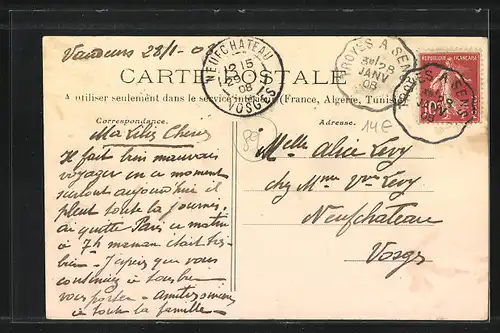 Vaudeurs 28/1-08
NEUFCHATEAU
12 15
29 1
08
VOSGES
TROYES A SENS
28
JANV
08
REPUBLIQUE FRANÇAISE
10
TROYES A SENS
CARTE POSTALE
A utiliser seulement dans le service intérieur (France, Algérie, Tunisie)
Correspondance.
Adresse.
14€
89
Ma Lilis Chérie
Il fait bien mauvais
voyager en ce moment
surtout aujourd'hui il
pleut toute la journée,
ai quitté Paris ce matin
à 7h maman était très
bien - J'espère que vous
continuez à tous bien
vous porter - Amitiés
à toute la famille -
Melle Alice Levy
chez Mme Vve Levy
Neufchateau
Vosges